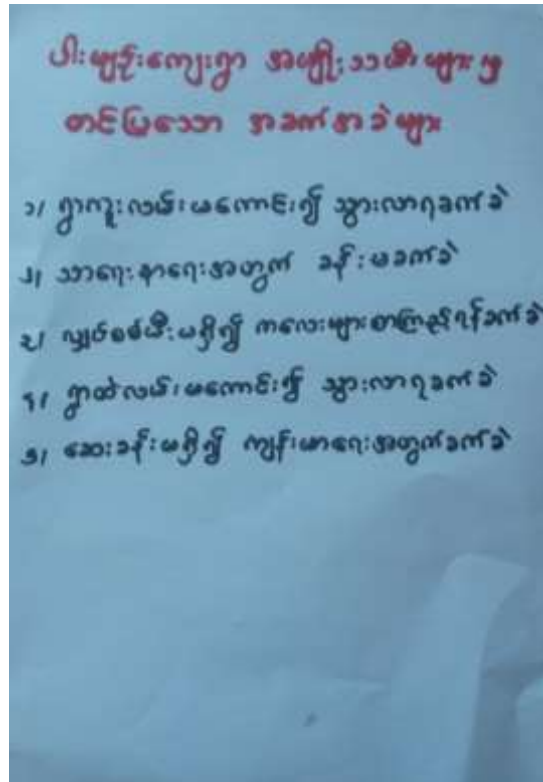 ပါးမျဉ်းကျေးရွာ အမျိုးသမီးများမှ
တင်ပြသော အခက်အခဲများ
၁/ ရွာကူးလမ်းမကောင်း၍ သွားလာရခက်ခဲ
၂/ သာရေးနာရေးအတွက် ခန်းမခက်ခဲ
၃/ လျှပ်စစ်မီးမရှိ၍ ကလေးများစာကြည့်ရန်ခက်ခဲ
၄/ ရွာထဲလမ်းမကောင်း၍ သွားလာရခက်ခဲ
၅/ ဆေးခန်းမရှိ၍ ကျန်းမာရေးအတွက်ခက်ခဲ